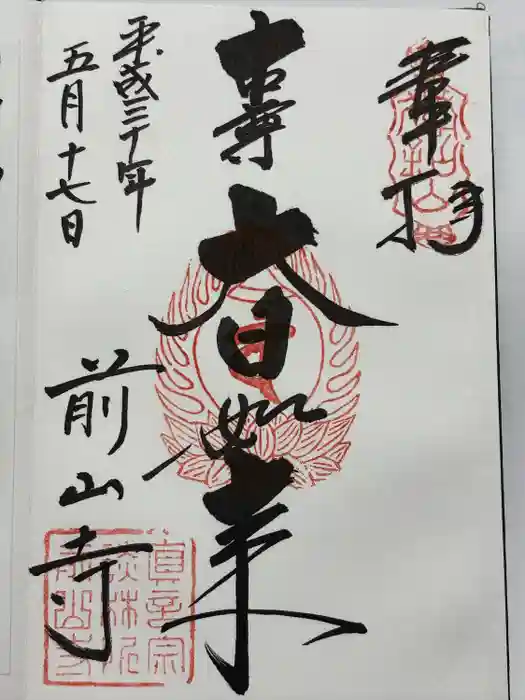 奉拝
本尊
大日如来
平成三十年
五月十七日
前山寺
真言宗
談林所
前山寺